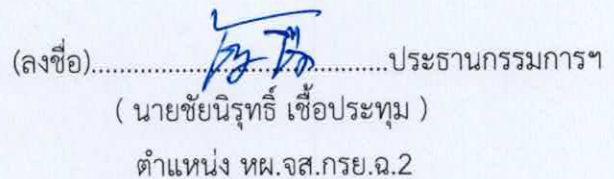 (ลงชื่อ)................................ประธานกรรมการฯ
( นายชัยนิรุทธิ์ เชื้อประทุม )
ตำแหน่ง หผ.จส.กรย.ฉ.2